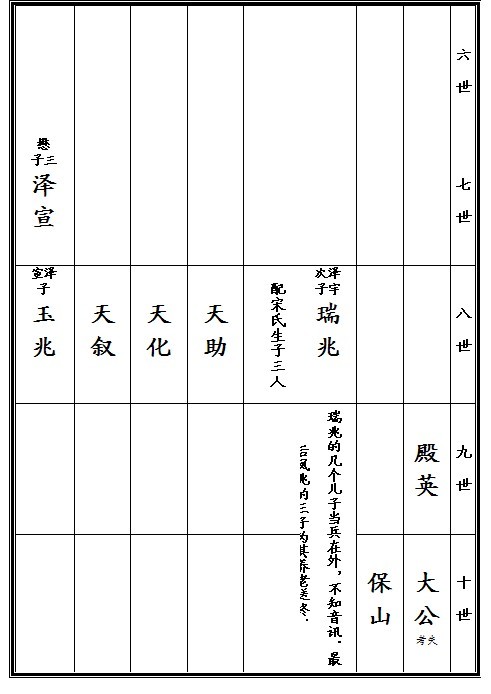 六世
七世
八世
九世
十世
殿英
大公
考失
保山
泽宇
次子
瑞兆
配宋氏生子三人
瑞兆的几个儿子当兵在外，不知音讯．最
后凤兆的三子为其养老送终．
天助
天化
天叙
懋三子
泽宣
泽宣子
玉兆